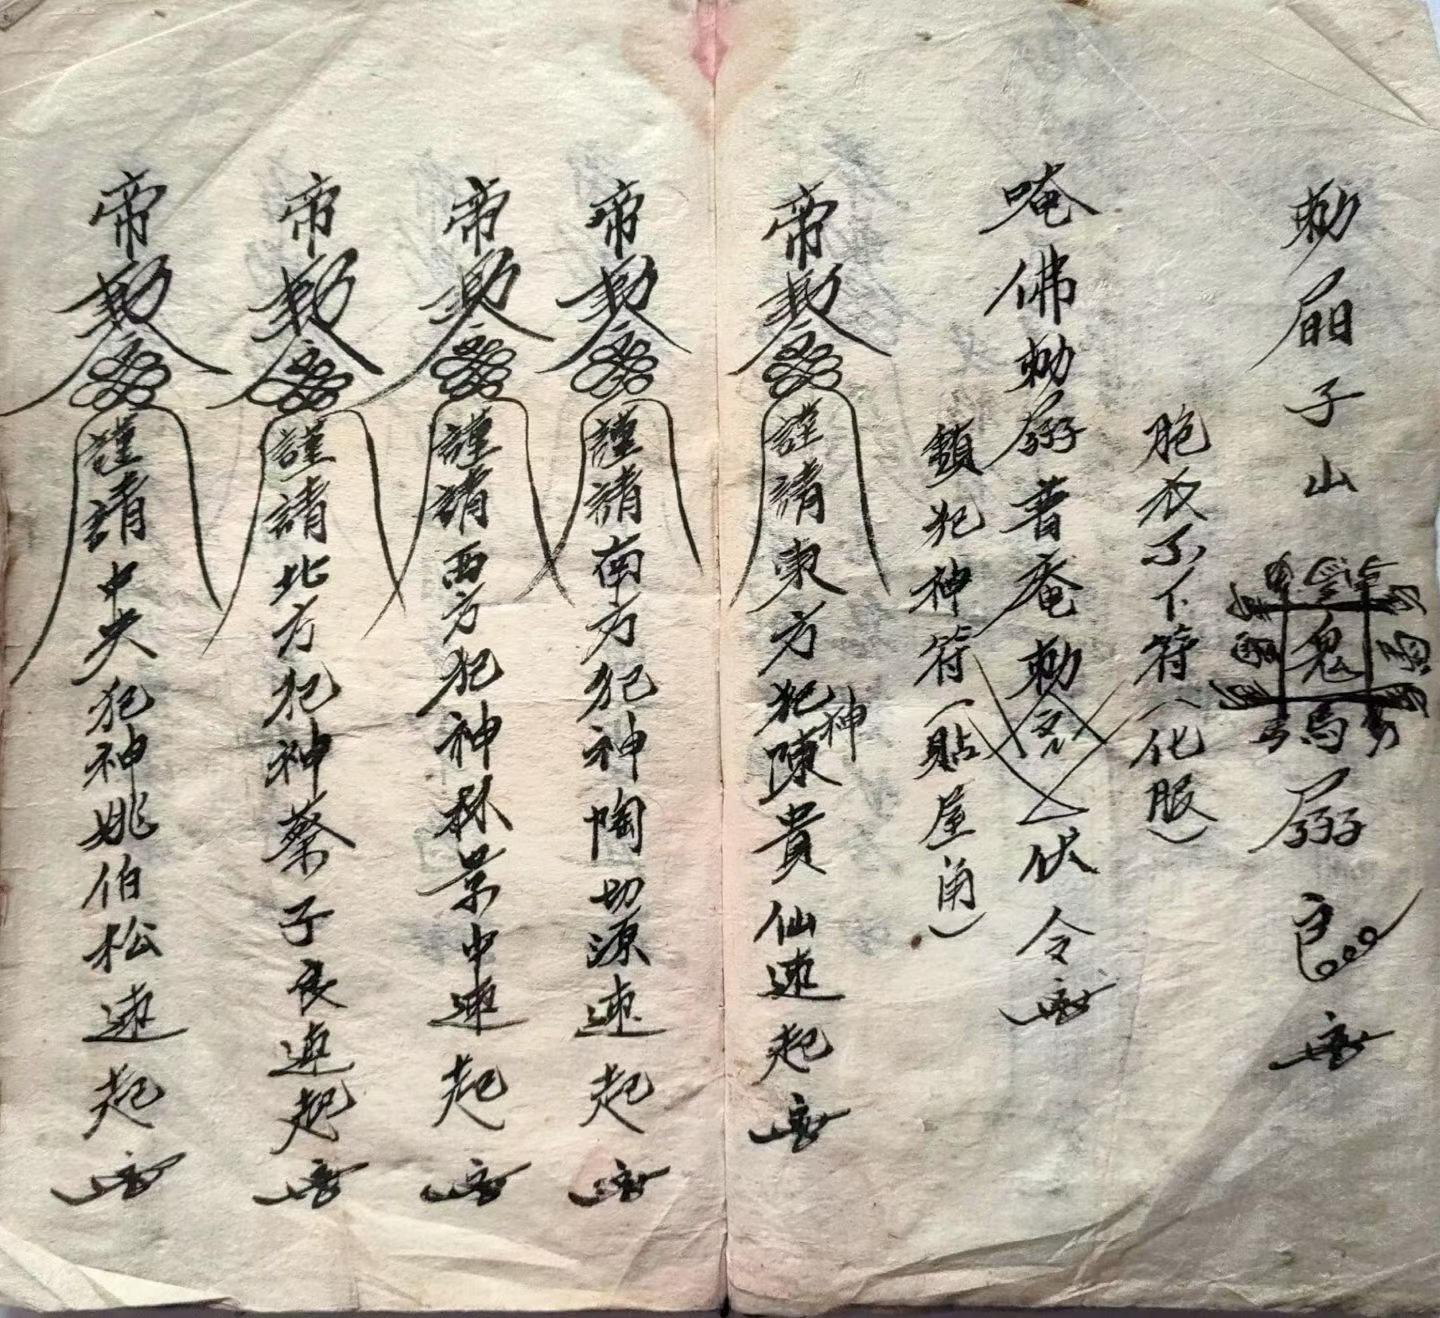 勅 子山 鬼
胞衣不下符（化服）
唵佛勅 普庵勅 伏令
鎖犯神符（貼屋角）
帝勅 謹請東方犯神陳貴仙速起
帝勅 謹請南方犯神陶切源速起
帝勅 謹請西方犯神林景中速起
帝勅 謹請北方犯神蔡子良速起
帝勅 謹請中央犯神姚伯松速起